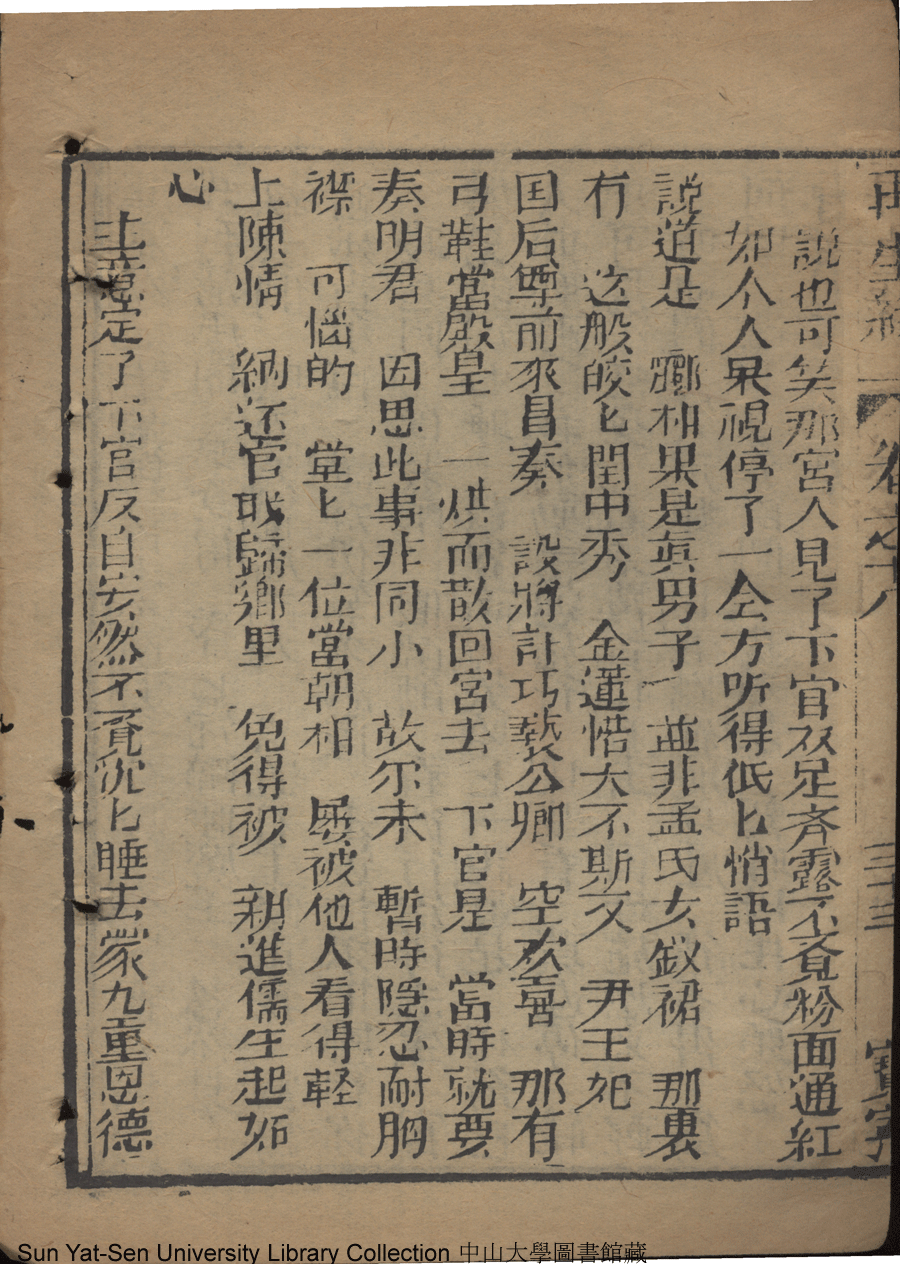 再生緣 卷之十八 三十三 寶寧
說也可笑那宮人見了下官双足斉露不覔粉面通紅
如仒人呆視停了一仝方听得低匕悄語
說道是 酈相果是真男子 並非孟氏女釵裙 那裏
冇 这般皎匕閨中秀 金蓮悎大不斯文 尹王妃
囯后尊前來自奏 設將計巧㙯公卿 空欢喜 那有
弓鞋當殿皇 一烘而散回宮去 下官是 當時就要
奏明君 因思此事非同小 故尔未 暫時隠忍耐胸
襟 可惱的 堂匕一位當朝相 屡被他人看得軽
上陳情 納还官戝歸鄉里 免得被 新進儒生起妬
心
主意定了下官反自安然不覔沉匕睡去蒙九重恩德
Sun Yat-Sen University Library Collection 中山大學圖書館藏